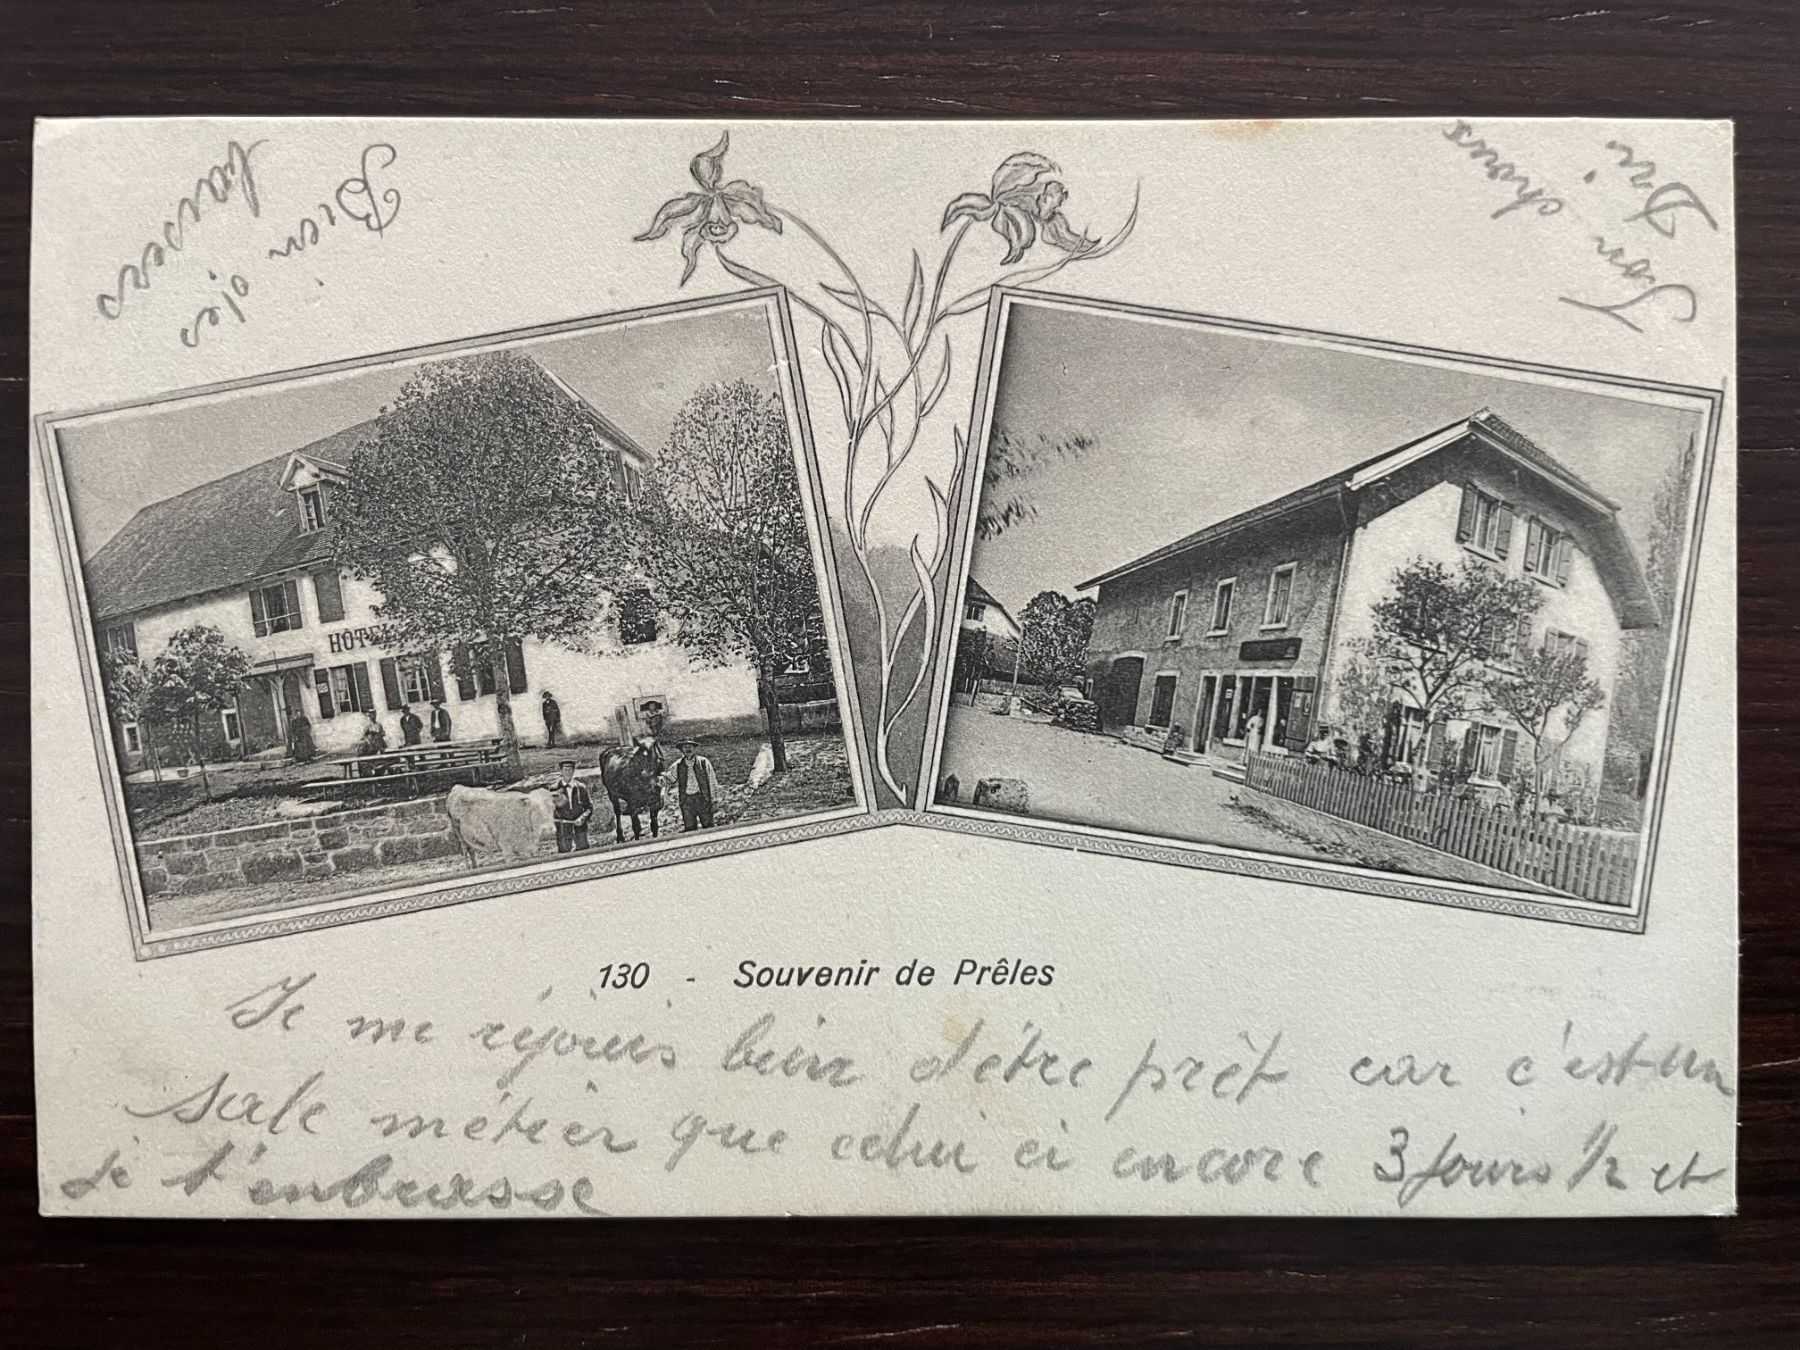 Bien des
baisers
Ton choux
HÔTEL
130 - Souvenir de Prêles
Je me réjouis bien d'être prêt car c'est un
sale métier que celui ci encore 3 jours 1/2 et
je t'embrasse